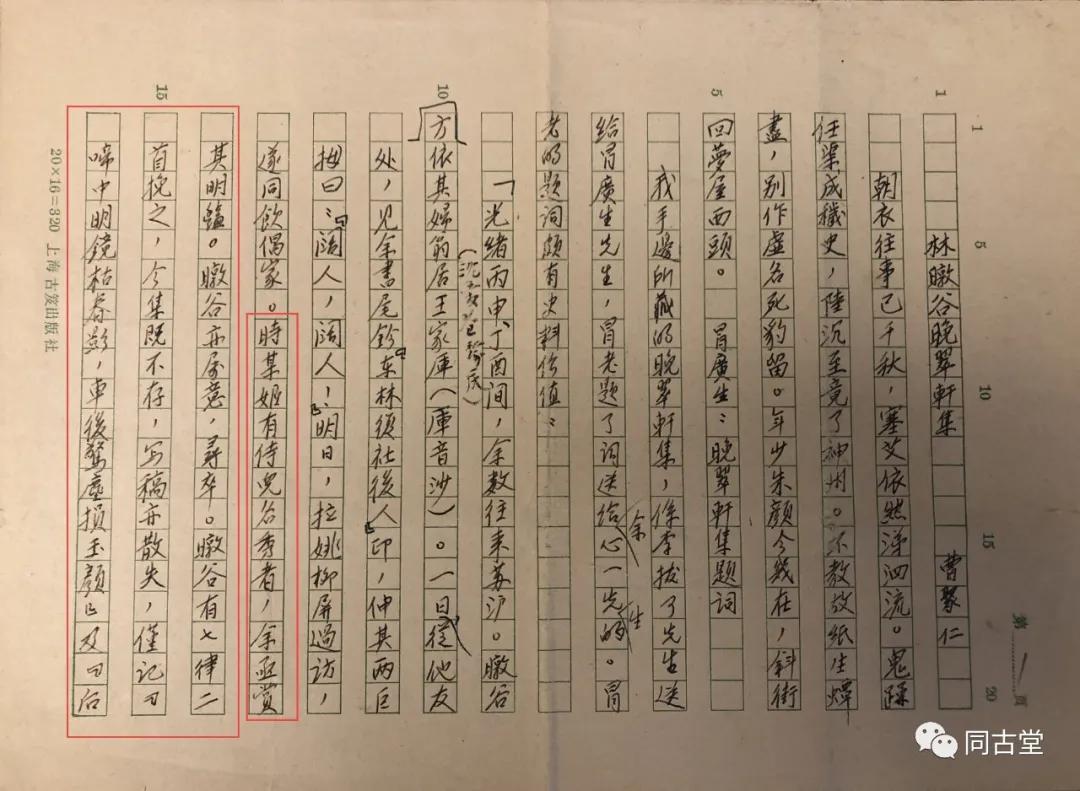 林暾谷晚翠軒集　曹聚仁
朝衣往事已千秋，塞艾依然涕泗流。鬼躁
任渠成穢史，陸沉至竟了神州。不教故紙生蟫
蠹，別作虛名死豹留。年少朱顏今幾在，斜街
回夢屋西頭。　冒廣生：晚翠軒集題詞
我手邊所藏的晚翠軒集，係李拔了先生送
給冒廣生先生，冒老題了詞送給余心一先生的。冒
老的題詞頗有史料价值：
「光緒丙申、丁酉间，余数往来苏沪。暾谷
方依其婦翁居王家庫（庫音沙）。一日從他友
处，见余書尾鈐『东林復社後人』印，伸其两巨
拇曰：『闊人，闊人！』明日，拉姚柳屏過访，
遂同飲偶家。時某姬有侍兒谷秀者，余亟賞
其明艷。暾谷亦屬意，尋卒。暾谷有七律二
首挽之，今集既不存，写稿亦散失，僅记『
啼中明鏡枯春影，車後驚塵損玉顏』及『后
20×16=320 上海古笈出版社
第 1 页
1
5
10
15
1
5
10
15
20
同古堂